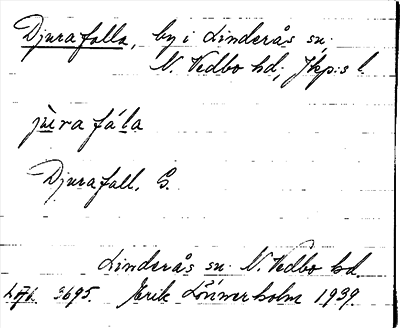 Djurafalla, by i Linderås sn.
N. Vedbo hd, Jkp:s l.
jùrafála
Djurafall. G.
Linderås sn. N. Vedbo hd.
3695. Erik Lönnerholm 1939.